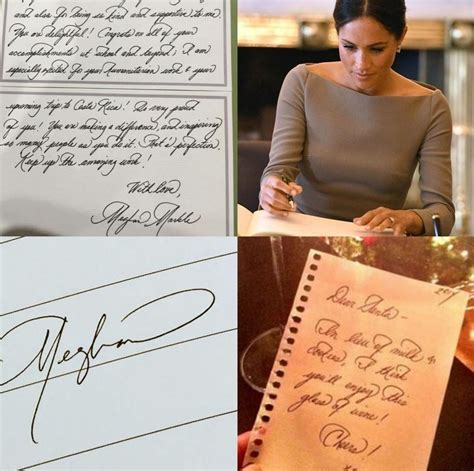 also for being so kind and supportive to me.
You are delightful! Congrats on all of your
accomplishments at school and beyond; I am
especially excited for your humanitarian work & your
upcoming trip to Costa Rica! So very proud
of you! You are making a difference, and inspiring
so many people as you do it. That is perfection.
Keep up the amazing work!
With love
Meghan Markle
Meghan
Dear Santa -
In lieu of milk &
cookies, I think
you'll enjoy this
glass of wine!
Cheers!